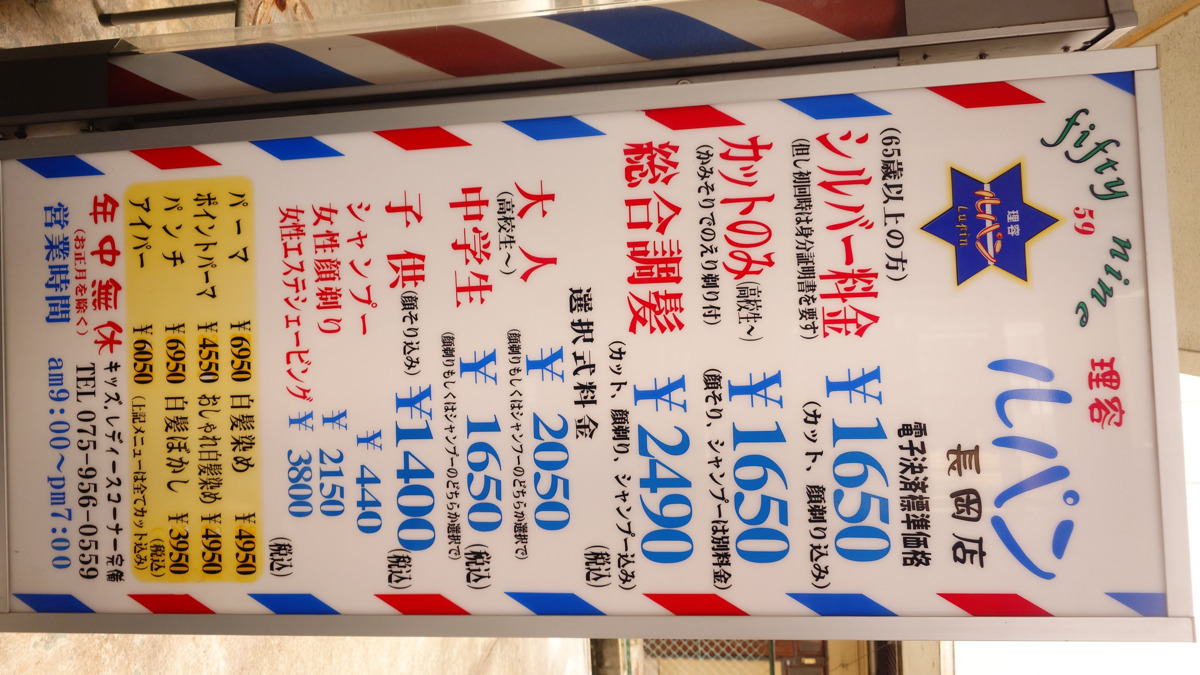 fifty nine
59
理容
ルパン
Lupin
理容
ルパン
長岡店
電子決済標準価格
(65歳以上の方)
シルバー料金 ¥1650
(但し初回時は身分証明書を要す) (カット、顔剃り込み)
カットのみ(高校生~) ¥1650
(かみそりでのえり剃り付) (顔そり、シャンプーは別料金)
総合調髪 ¥2490
(カット、顔剃り、シャンプー込み)
(税込)
選択式料金
大人 ¥2050
(高校生~) (顔剃りもしくはシャンプーのどちらか選択で)
中学生 ¥1650 (税込)
(顔剃りもしくはシャンプーのどちらか選択で)
子供(顔そり込み) ¥1400 (税込)
シャンプー ¥440
女性顔剃り ¥2150
女性エステシェービング ¥3800
(税込)
パーマ ¥6950 白髪染め ¥4950
ポイントパーマ ¥4550 おしゃれ白髪染め ¥4950
パンチ ¥6950 白髪ぼかし ¥3950
アイパー ¥6050 (上記メニューは全てカット込み) (税込)
年中無休 キッズ、レディースコーナー完備
(お正月を除く) TEL 075-956-0559
営業時間 am9:00~pm7:00